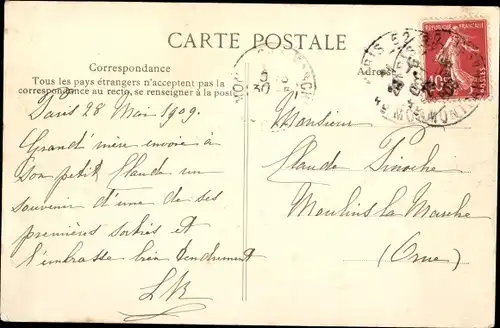 CARTE POSTALE
Correspondance
Tous les pays étrangers n'acceptent pas la
correspondance au recto, se renseigner à la poste
Adresse
RÉPUBLIQUE FRANÇAISE
10
Paris 28 Mai 1909.
Grand'mère envoie à
son petit Claude un
souvenir d'une de ses
premières sorties et
l'embrasse bien tendrement
Monsieur
Claude
Moulins la Marche
(Orne)